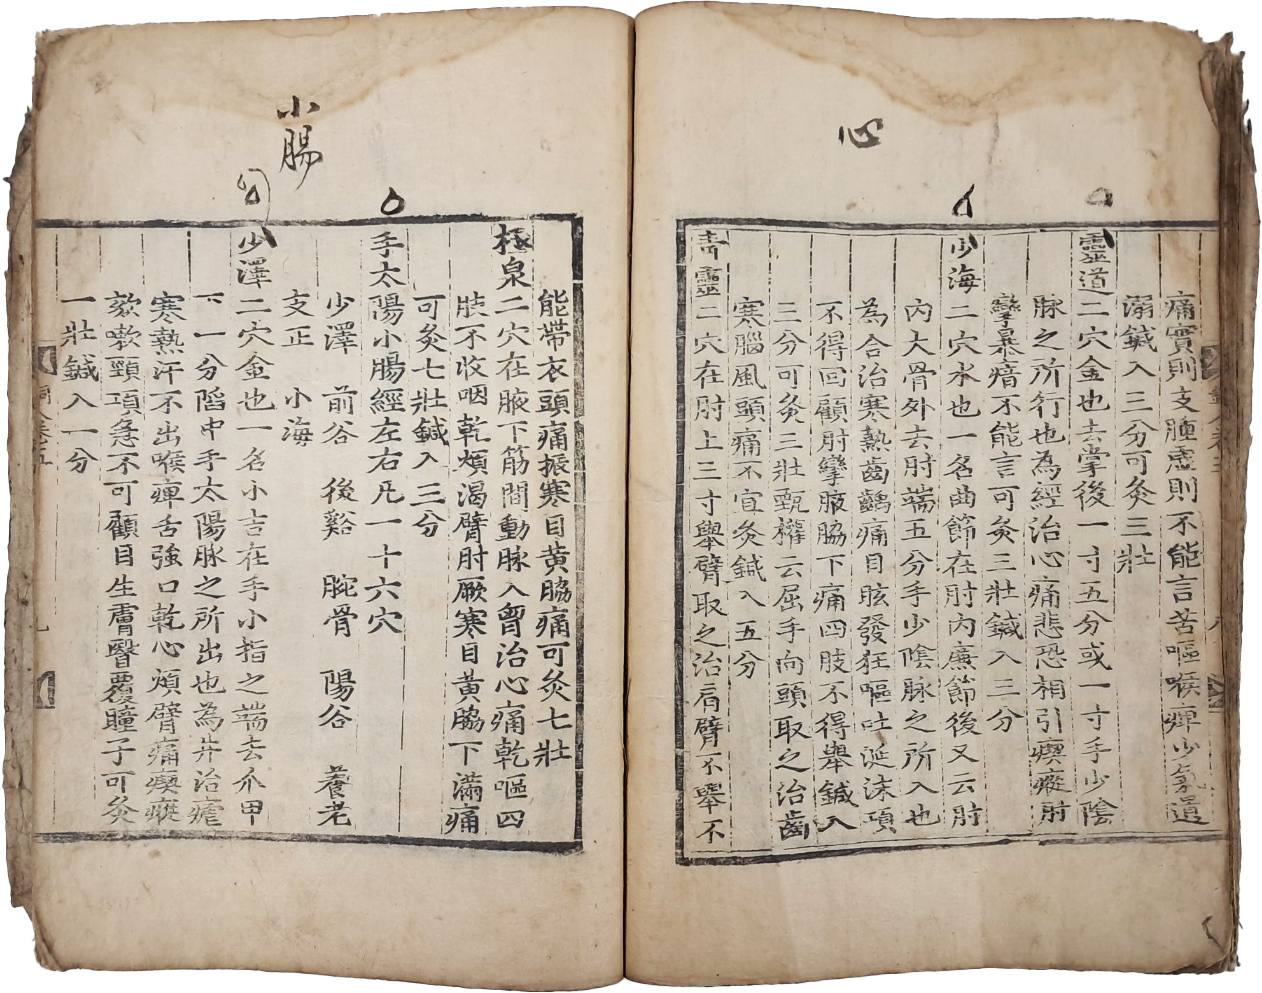 心
痛實則支腫虛則不能言苦嘔喉痺少氣遺
溺鍼入三分可灸三壯
靈道二穴金也去掌後一寸五分或一寸手少陰
脉之所行也為經治心痛悲恐相引瘈瘲肘
攣暴瘖不能言可灸三壯鍼入三分
少海二穴水也一名曲節在肘內廉節後又云肘
內大骨外去肘端五分手少陰脉之所入也
為合治寒熱齒齲痛目眩發狂嘔吐涎沫項
不得回顧肘攣腋脇下痛四肢不得舉鍼入
三分可灸三壯甄權云屈手向頭取之治齒
寒腦風頭痛不宜灸鍼入五分
青靈二穴在肘上三寸舉臂取之治肩臂不舉不
小腸
能帶衣頭痛振寒目黄脇痛可灸七壯
極泉二穴在腋下筋間動脉入胷治心痛乾嘔四
肢不收咽乾煩渴臂肘厥寒目黄脇下滿痛
可灸七壯鍼入三分
手太陽小腸經左右凡一十六穴
少澤 前谷 後谿 腕骨 陽谷 養老
支正 小海
少澤二穴金也一名小吉在手小指之端去爪甲
下一分陷中手太陽脉之所出也為井治瘧
寒熱汗不出喉痺舌強口乾心煩臂痛瘈瘲
欬嗽頸項急不可顧目生膚瞖覆瞳子可灸
一壯鍼入一分